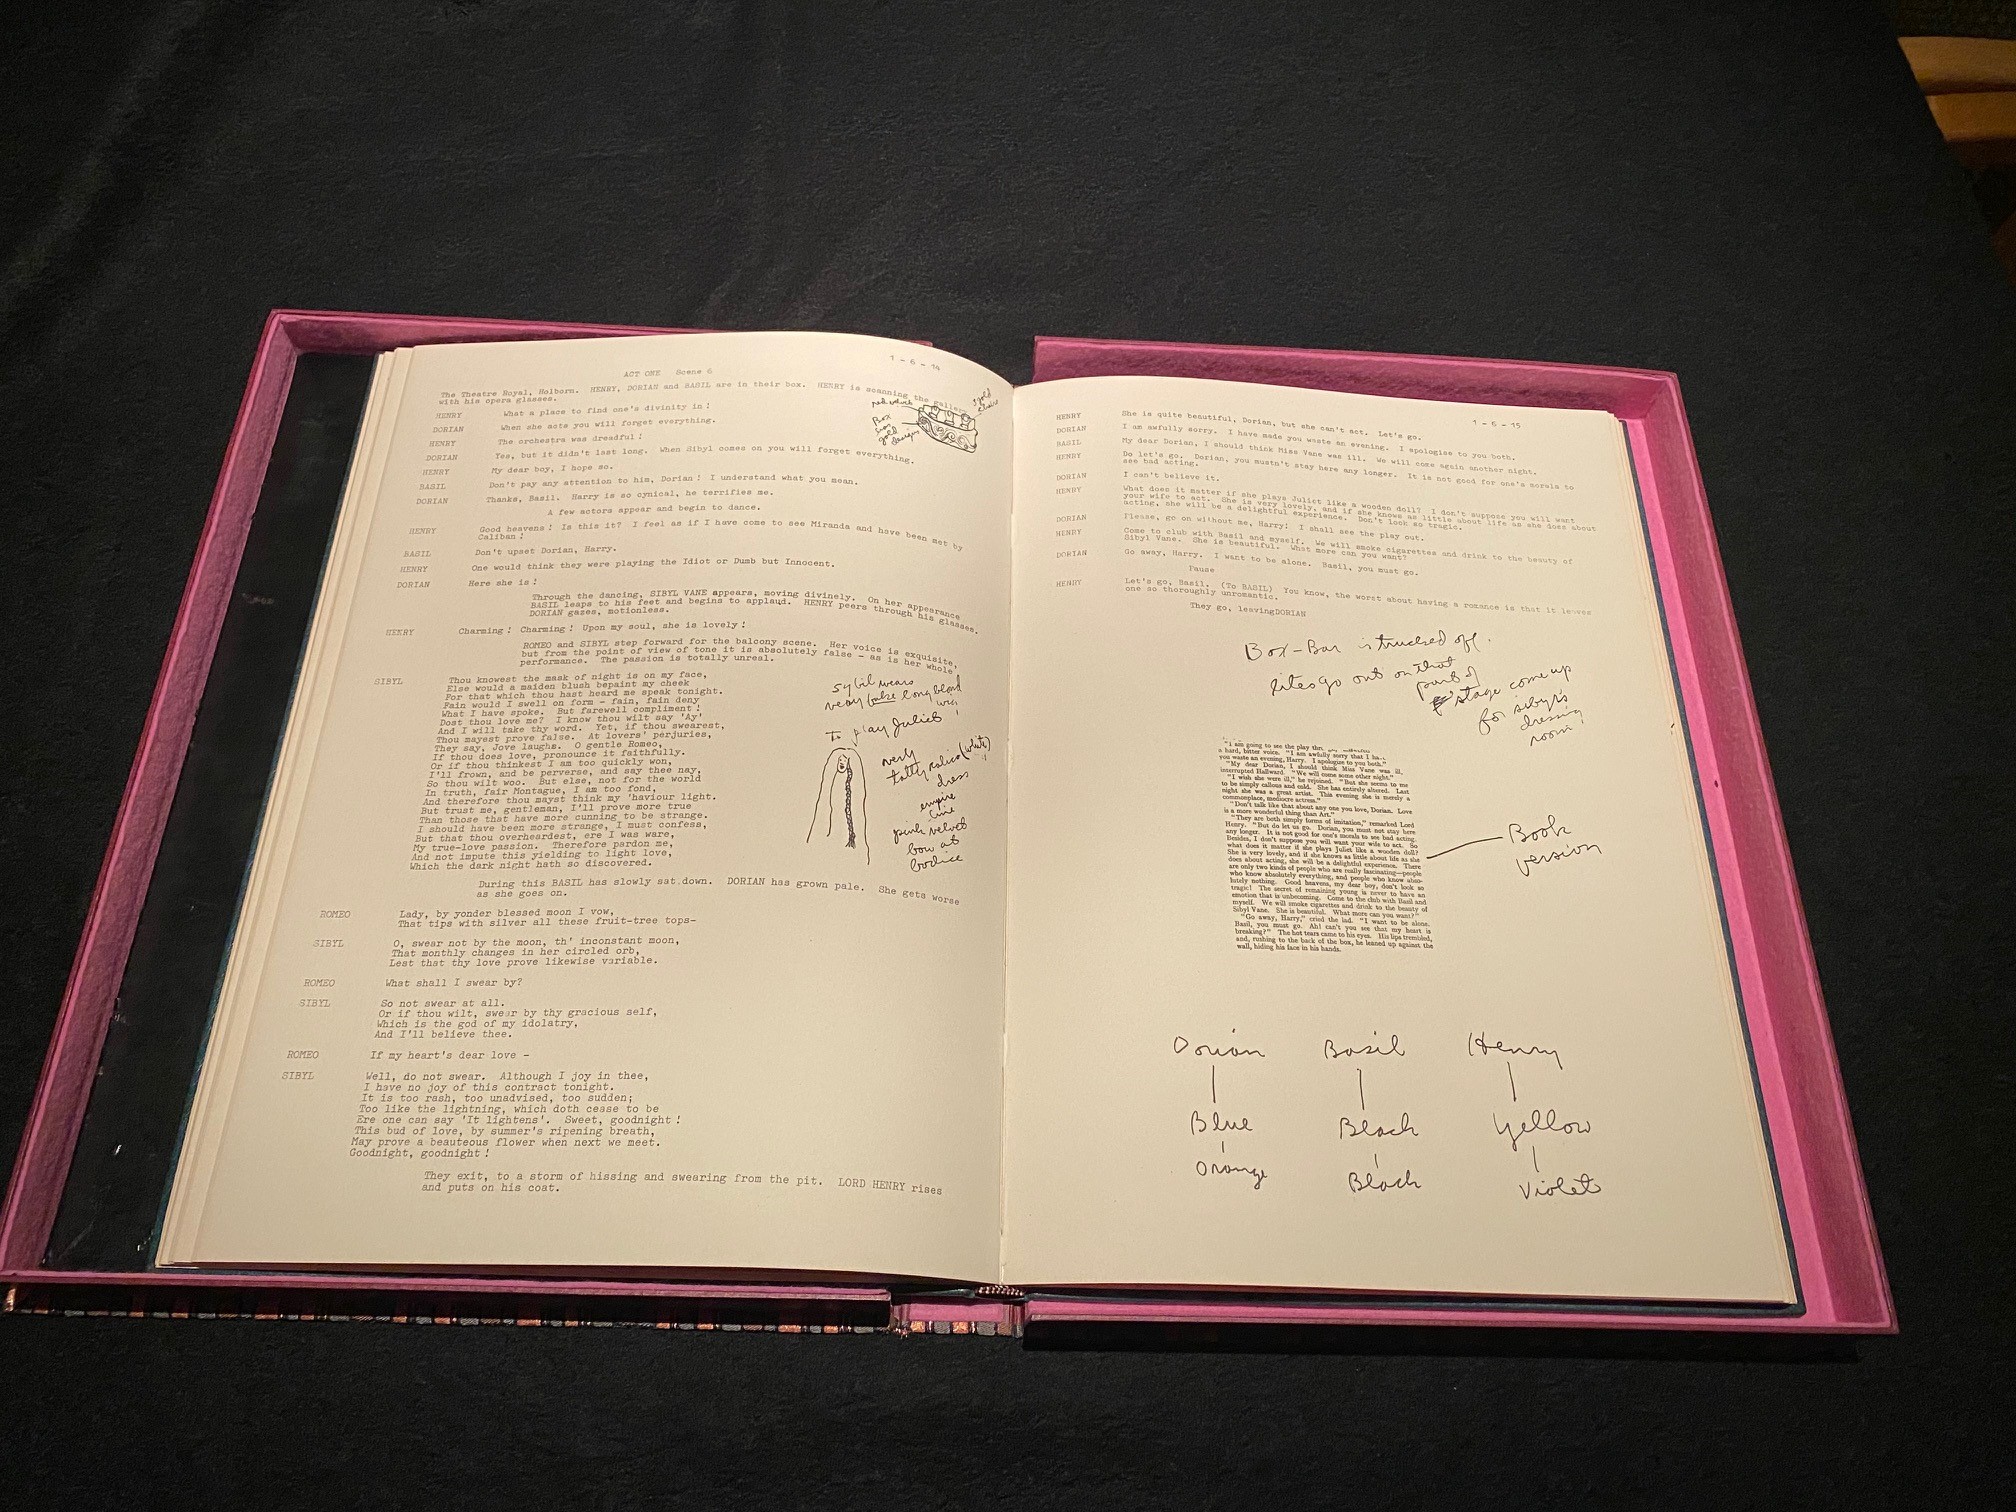 1 - 6 - 14
ACT ONE Scene 6
The Theatre Royal, Holborn. HENRY, DORIAN and BASIL are in their box. HENRY is scanning the gallery
with his opera glasses.
HENRY What a place to find one's divinity in!
DORIAN When she acts you will forget everything.
HENRY The orchestra was dreadful!
DORIAN Yes, but it didn't last long. When Sibyl comes on you will forget everything.
HENRY My dear boy, I hope so.
BASIL Don't pay any attention to him, Dorian! I understand what you mean.
DORIAN Thanks, Basil. Harry is so cynical, he terrifies me.
A few actors appear and begin to dance.
HENRY Good heavens! Is this it? I feel as if I have come to see Miranda and have been met by
Caliban!
BASIL Don't upset Dorian, Harry.
HENRY One would think they were playing the Idiot or Dumb but Innocent.
DORIAN Here she is!
Through the dancing, SIBYL VANE appears, moving divinely. On her appearance
BASIL leaps to his feet and begins to applaud. HENRY peers through his glasses.
DORIAN gazes, motionless.
HENRY Charming! Charming! Upon my soul, she is lovely!
ROMEO and SIBYL step forward for the balcony scene. Her voice is exquisite,
but from the point of view of tone it is absolutely false - as is her whole
performance. The passion is totally unreal.
SIBYL Thou knowest the mask of night is on my face,
Else would a maiden blush bepaint my cheek
For that which thou hast heard me speak tonight.
Fain would I swell on form - fain, fain deny
What I have spoke. But farewell compliment!
Dost thou love me? I know thou wilt say 'Ay'
And I will take thy word. Yet, if thou swearest,
Thou mayest prove false. At lovers' perjuries,
They say, Jove laughs. O gentle Romeo,
If thou does love, pronounce it faithfully.
Or if thou thinkest I am too quickly won,
I'll frown, and be perverse, and say thee nay,
So thou wilt woo. But else, not for the world
In truth, fair Montague, I am too fond,
And therefore thou mayst think my 'haviour light.
But trust me, gentleman, I'll prove more true
Than those that have more cunning to be strange.
I should have been more strange, I must confess,
But that thou overheardest, ere I was ware,
My true-love passion. Therefore pardon me,
And not impute this yielding to light love,
Which the dark night hath so discovered.
During this BASIL has slowly sat down. DORIAN has grown pale. She gets worse
as she goes on.
ROMEO Lady, by yonder blessed moon I vow,
That tips with silver all these fruit-tree tops-
SIBYL O, swear not by the moon, th' inconstant moon,
That monthly changes in her circled orb,
Lest that thy love prove likewise variable.
ROMEO What shall I swear by?
SIBYL So not swear at all.
Or if thou wilt, swear by thy gracious self,
Which is the god of my idolatry,
And I'll believe thee.
ROMEO If my heart's dear love -
SIBYL Well, do not swear. Although I joy in thee,
I have no joy of this contract tonight.
It is too rash, too unadvised, too sudden;
Too like the lightning, which doth cease to be
Ere one can say 'It lightens'. Sweet, goodnight!
This bud of love, by summer's ripening breath,
May prove a beauteous flower when next we meet.
Goodnight, goodnight!
They exit, to a storm of hissing and swearing from the pit. LORD HENRY rises
and puts on his coat.
red velvet
3 gold
chairs
Box
gold
designs
sybil wears
very long blond
wig
to play Juliet!
very
tatty (white)
dress
empire
line
pink velvet
bow at
bodice
1 - 6 - 15
HENRY She is quite beautiful, Dorian, but she can't act. Let's go.
DORIAN I am awfully sorry. I have made you waste an evening. I apologise to you both.
BASIL My dear Dorian, I should think Miss Vane was ill. We will come again another night.
HENRY Do let's go. Dorian, you mustn't stay here any longer. It is not good for one's morals to
see bad acting.
DORIAN I can't believe it.
HENRY What does it matter if she plays Juliet like a wooden doll? I don't suppose you will want
your wife to act. She is very lovely, and if she knows as little about life as she does about
acting, she will be a delightful experience. Don't look so tragic.
DORIAN Please, go on without me, Harry! I shall see the play out.
HENRY Come to club with Basil and myself. We will smoke cigarettes and drink to the beauty of
Sibyl Vane. She is beautiful. What more can you want?
DORIAN Go away, Harry. I want to be alone. Basil, you must go.
Pause
HENRY Let's go, Basil. (To BASIL) You know, the worst about having a romance is that it leaves
one so thoroughly unromantic.
They go, leavingDORIAN
Box-Bar is trucked off.
Lites go out on that
part of
stage come up
for sibyl's
dressing
room
"I am going to see the play
a hard, bitter voice. "I am awfully sorry that I
you waste an evening, Harry. I apologise to you both."
"My dear Dorian, I should think Miss Vane was ill,
interrupted Hallward. "We will come some other night."
"I wish she were ill," he rejoined. "But she seems to me
to be simply callous and cold. She has entirely altered. Last
night she was a great artist. This evening she is merely a
commonplace, mediocre actress."
"Don't talk like that about any one you love, Dorian. Love
is a more wonderful thing than Art."
"They are both simply forms of imitation," remarked Lord
Henry. "But do let us go. Dorian, you must not stay here
any longer. It is not good for one's morals to see bad acting.
Besides, I don't suppose you will want your wife to act. So
what does it matter if she plays Juliet like a wooden doll?
She is very lovely, and if she knows as little about life as she
does about acting, she will be a delightful experience. There
are only two kinds of people who are really fascinating—people
who know absolutely everything, and people who know abso-
lutely nothing. Good heavens, my dear boy, don't look so
tragic! The secret of remaining young is never to have an
emotion that is unbecoming. Come to the club with Basil and
myself. We will smoke cigarettes and drink to the beauty of
Sibyl Vane. She is beautiful. What more can you want?"
"Go away, Harry," cried the lad. "I want to be alone.
Basil, you must go. Ah! can't you see that my heart is
breaking?" The hot tears came to his eyes. His lips trembled,
and, rushing to the back of the box, he leaned up against the
wall, hiding his face in his hands.
Book
version
Dorian Basil Henry
Blue Black Yellow
Orange Black Violet